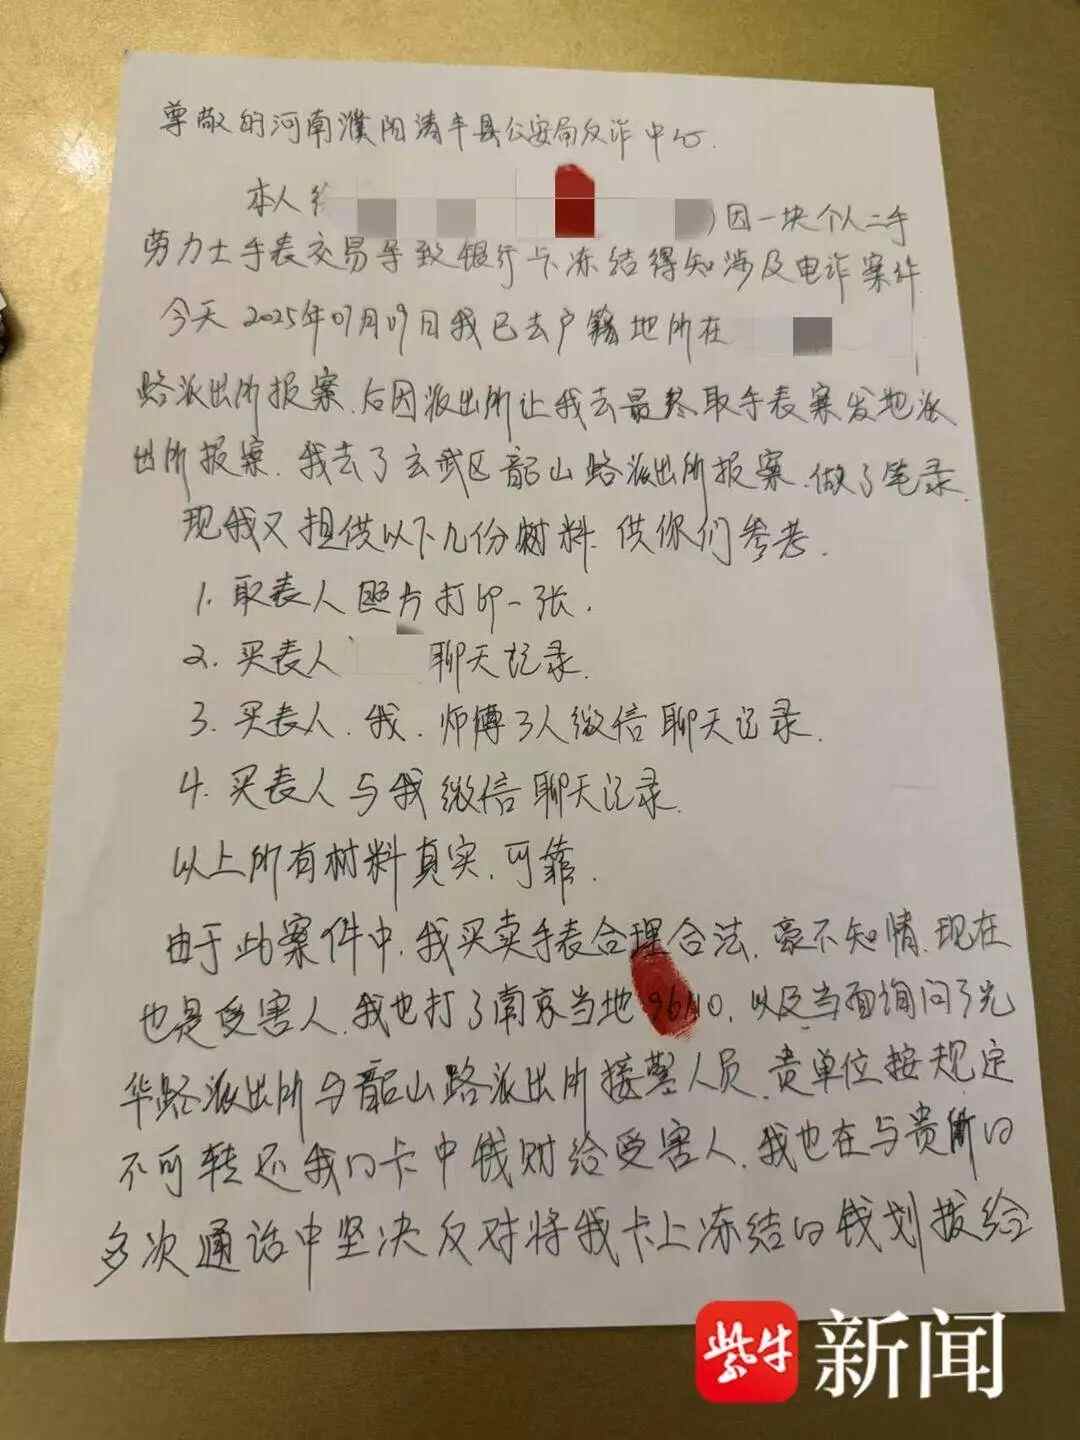 尊敬的河南濮阳清丰县公安局反诈中心.
本人徐 )因一块个人二手
劳力士手表交易导致银行卡冻结得知涉及电诈案件.
今天2025年07月09日我已去户籍地所在
路派出所报案.后因派出所让我去最终取手表案发地派
出所报案.我去了玄武区韶山路派出所报案.做了笔录.
现我又提供以下几份材料.供你们参考.
1.取表人照片打印一张.
2.买表人 聊天记录.
3.买表人.我.师傅3人微信聊天记录.
4.买表人与我微信聊天记录.
以上所有材料真实.可靠.
由于此案件中.我买卖手表合理合法.豪不知情.现在
也是受害人.我也打了南京当地96110.以及当面询问了光
华路派出所与韶山路派出所接警人员.贵单位按规定
不可转还我的卡中钱财给受害人.我也在与贵所的
多次通话中坚决反对将我卡上冻结的钱划拨给
紫牛新闻